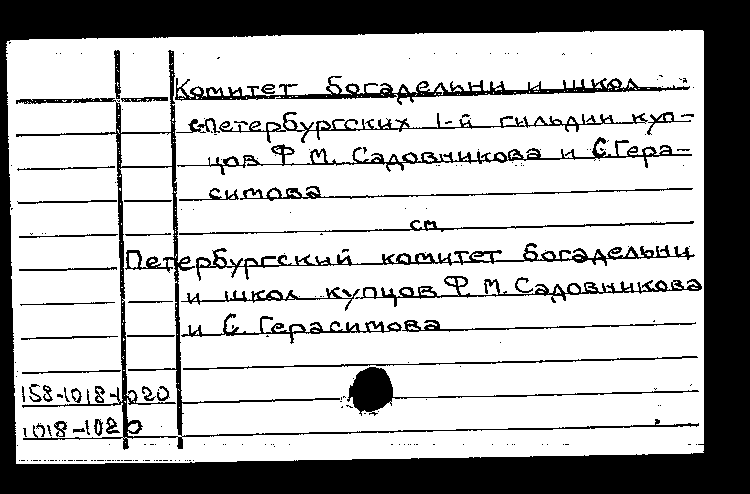 Комитет богадельни и школ
с-петербургских 1-й гильдии куп-
цов Ф.М. Садовникова и С. Гера-
симова
см.
Петербургский комитет богадельни
и школ купцов Ф.М. Садовникова
и С. Герасимова
158-1018-1020
1018-1020